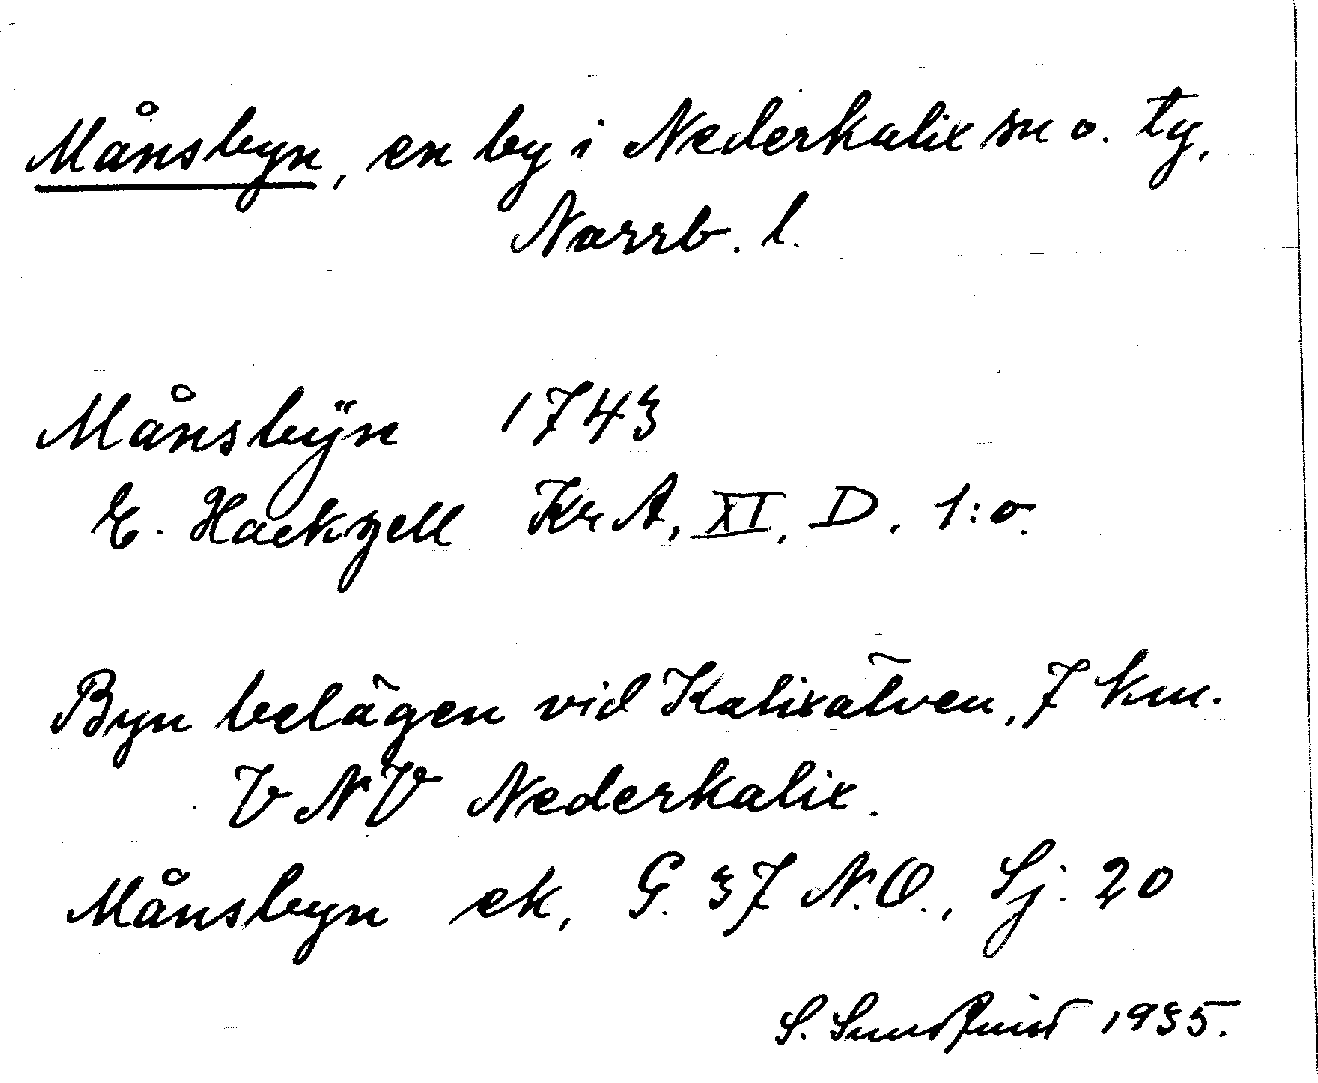 Månsbyn, en by i Nederkalix sn o. tg,
Norrb. l.
Månsbÿn 1743
E. Hackzell Kr A, XI, D. 1:o.
Byn belägen vid Kalixälven, 7 km.
V NV Nederkalix.
Månsbyn ek, G. 37 N.O., Sj. 20
S. Sundquist 1935.